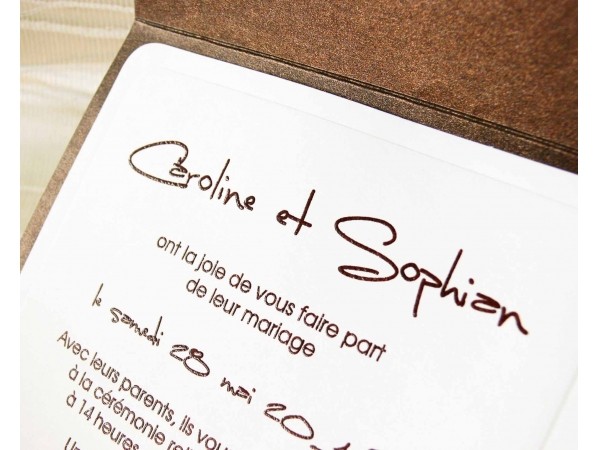 Caroline et Sophian
ont la joie de vous faire part
de leur mariage
le samedi 28 mai
Avec leurs parents, ils
à la cérémonie
à 14 heures